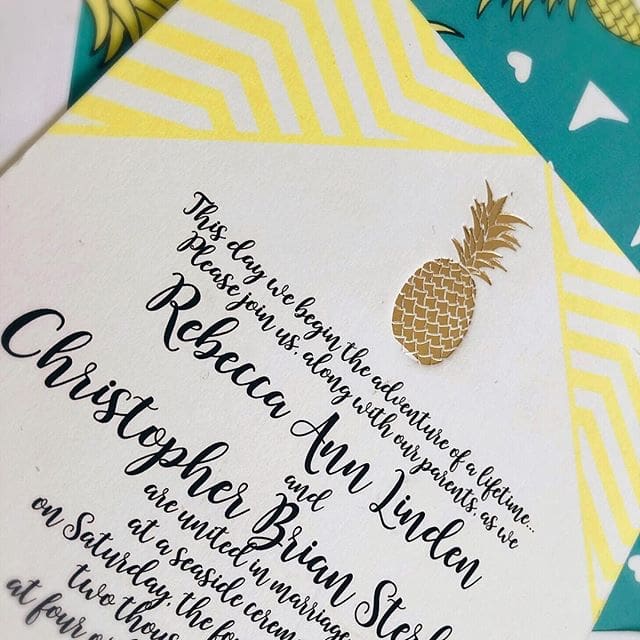 This day we begin the adventure of a lifetime...
Please join us, along with our parents, as we
Rebecca Ann Linden
and
Christopher Brian
are united in marriage
at a seaside
on Saturday, the
two
at four